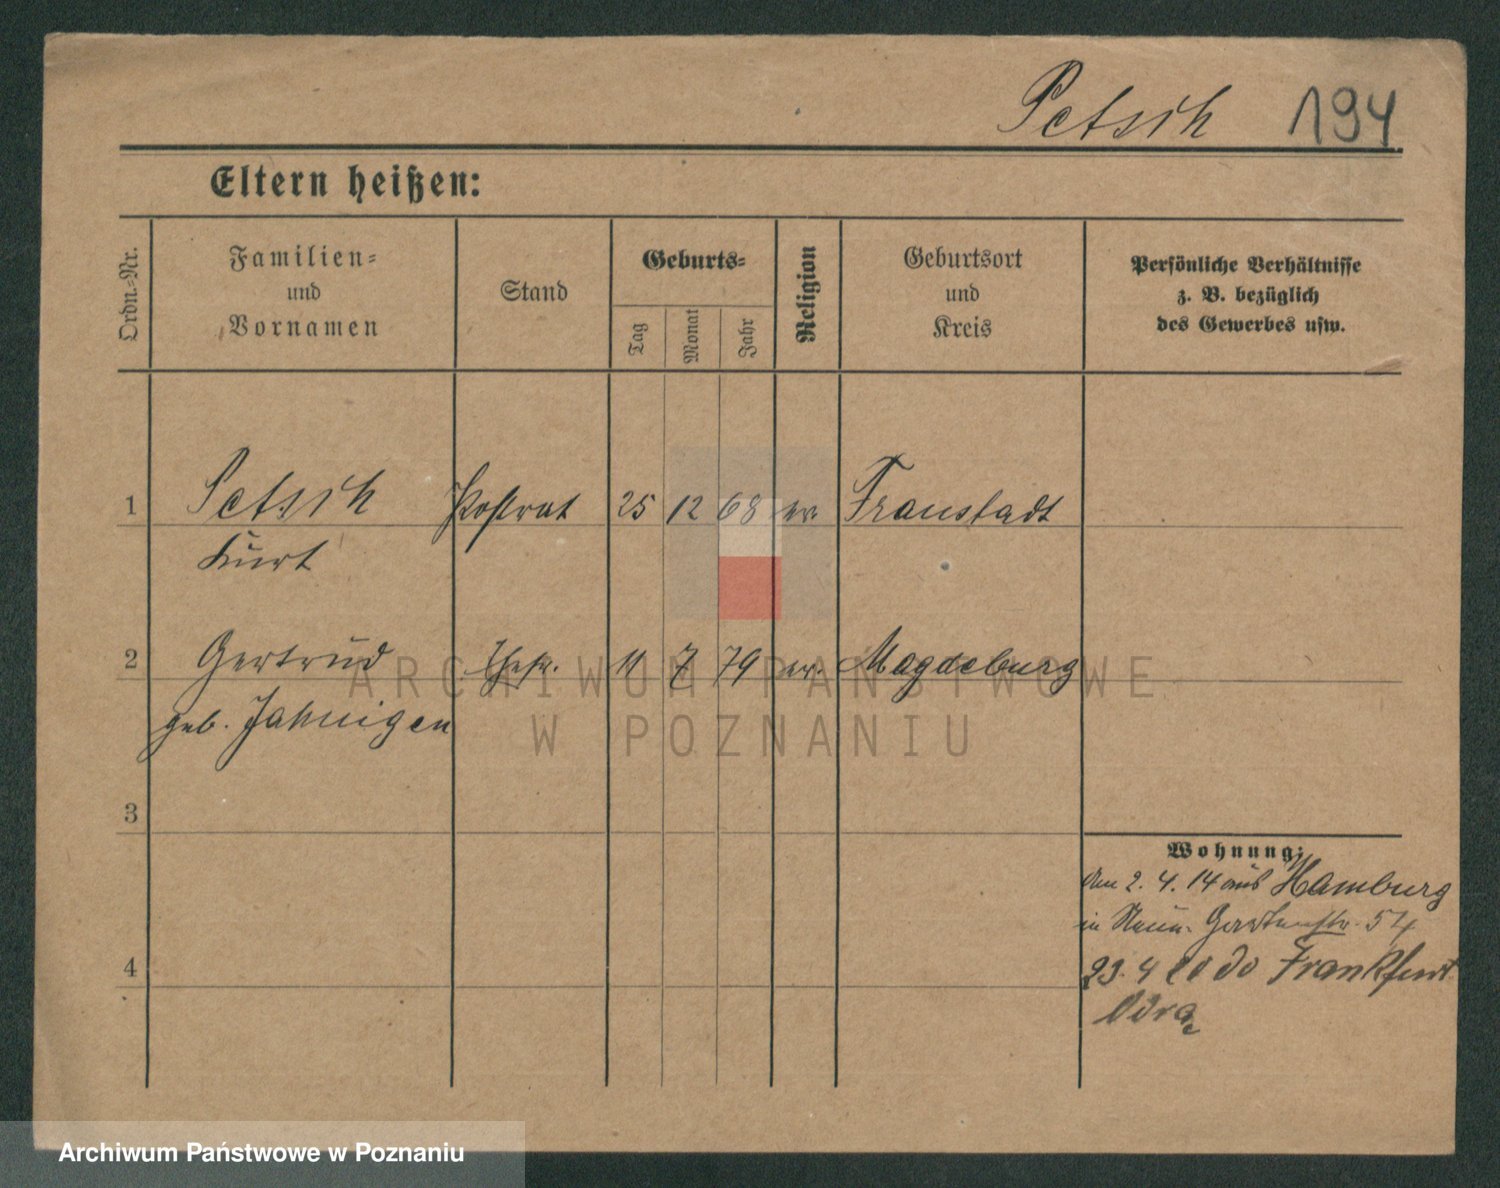 Petsch 194
Eltern heißen:
Ordn.-Nr.
Familien-
und
Vornamen
Stand
Geburts-
Tag
Monat
Jahr
Religion
Geburtsort
und
Kreis
Persönliche Verhältnisse
z. B. bezüglich
des Gewerbes usw.
1 Petsch Postrat 25 12 68 ev. Fraustadt
Kurt
2 Gertrud Ehefr. 11 7 79 ev. Magdeburg
geb. Jahnigen
3
Wohnung:
den 2. 4. 14 aus Hamburg
in 54
4
23. 4 20 do Frankfurt
Odra
ARCHIWUM PAŃSTWOWE
W POZNANIU
Archiwum Państwowe w Poznaniu